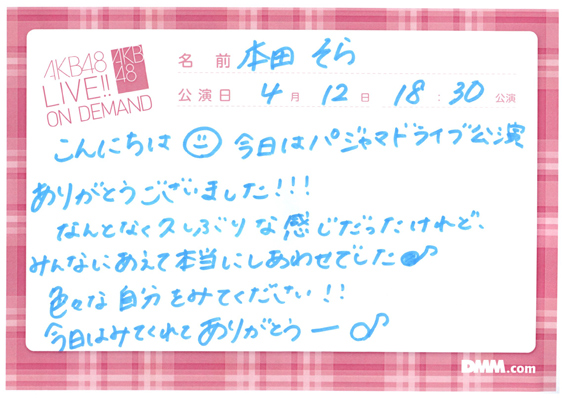 AKB48
LIVE!!
ON DEMAND
AKB
48
名前 本田 そら
公演日 4月 12日 18:30 公演
こんにちは 今日はパジャマドライブ公演
ありがとうございました!!!
なんとなく久しぶりな感じだったけれど、
みんなにあえて本当にしあわせでした♪
色々な自分をみてください!!
今日はみてくれてありがとうー♪
DMM.com